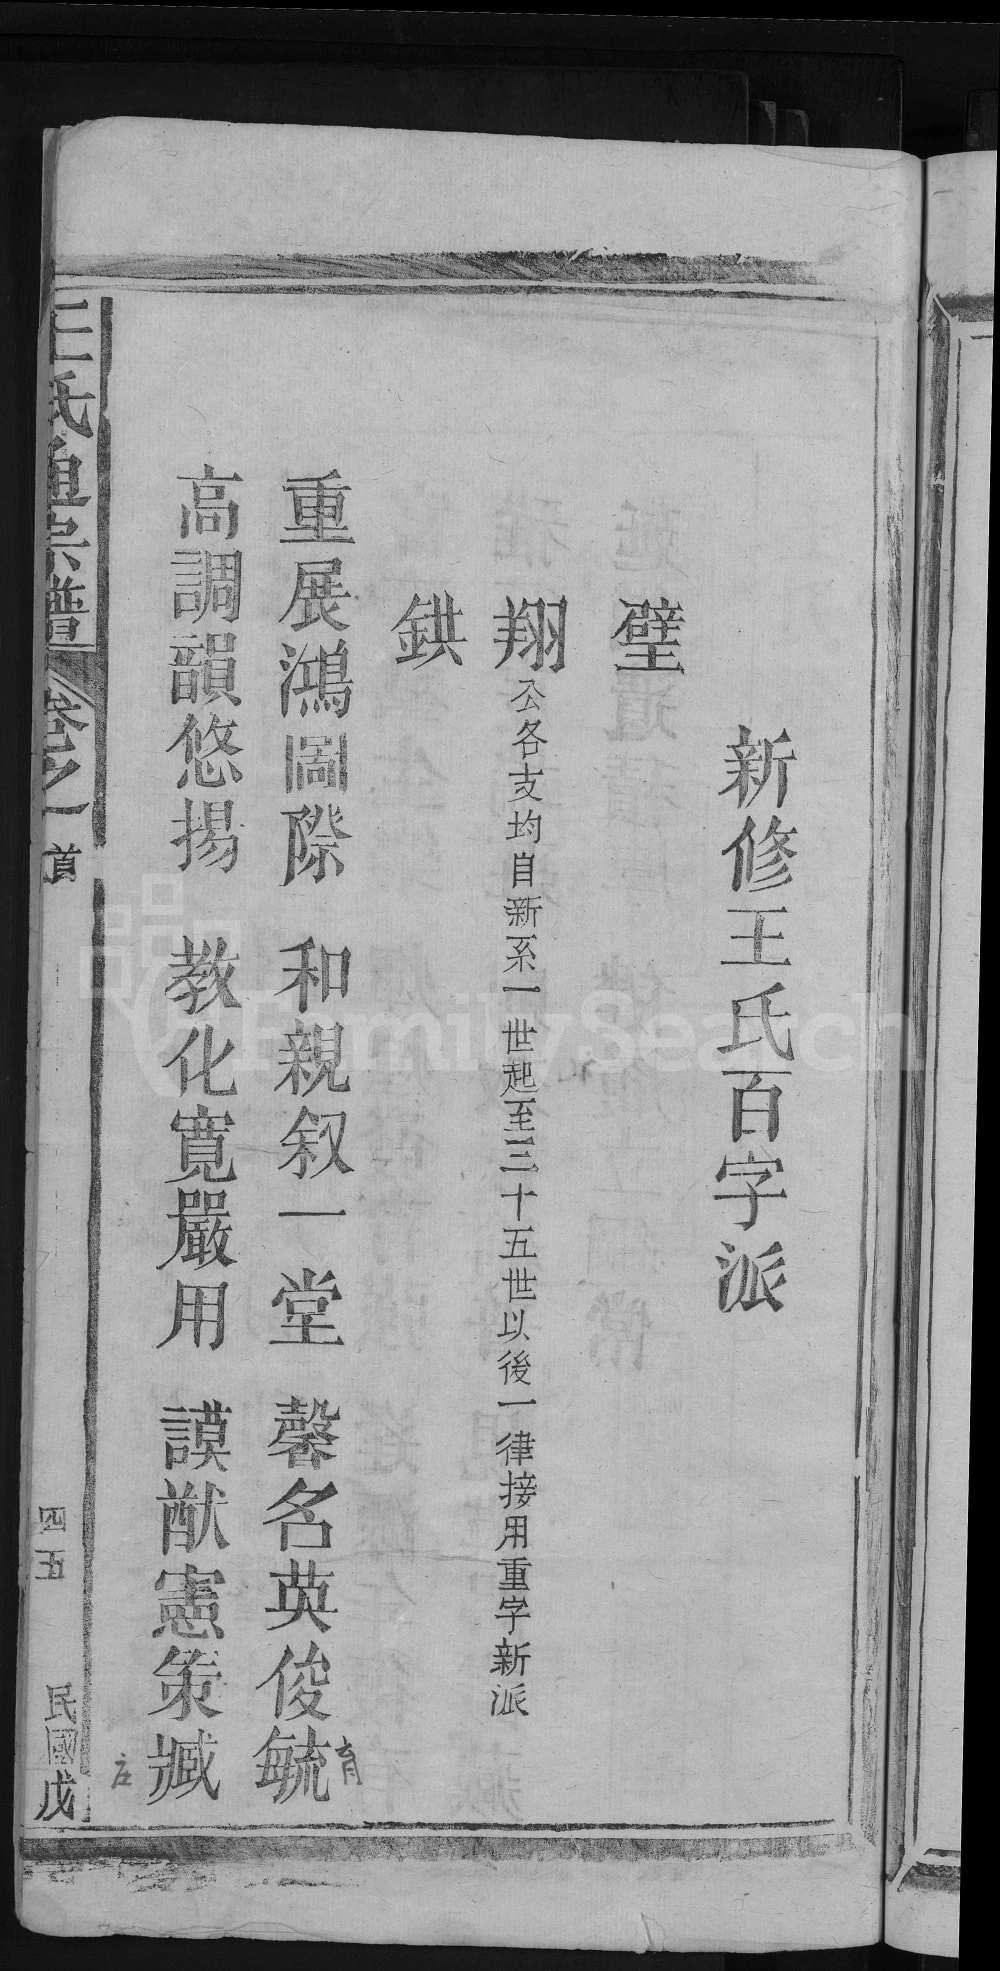 新修王氏百字派
璧
翔公各支均自新系一世起至三十五世以後一律接用重字新派
鉷
重展鴻圖際　和親叙一堂　馨名英俊毓
育
高調韻悠揚　教化寬嚴用　謨猷憲策臧
王氏通宗譜　卷之一　首　四五　民國戊
FamilySearch